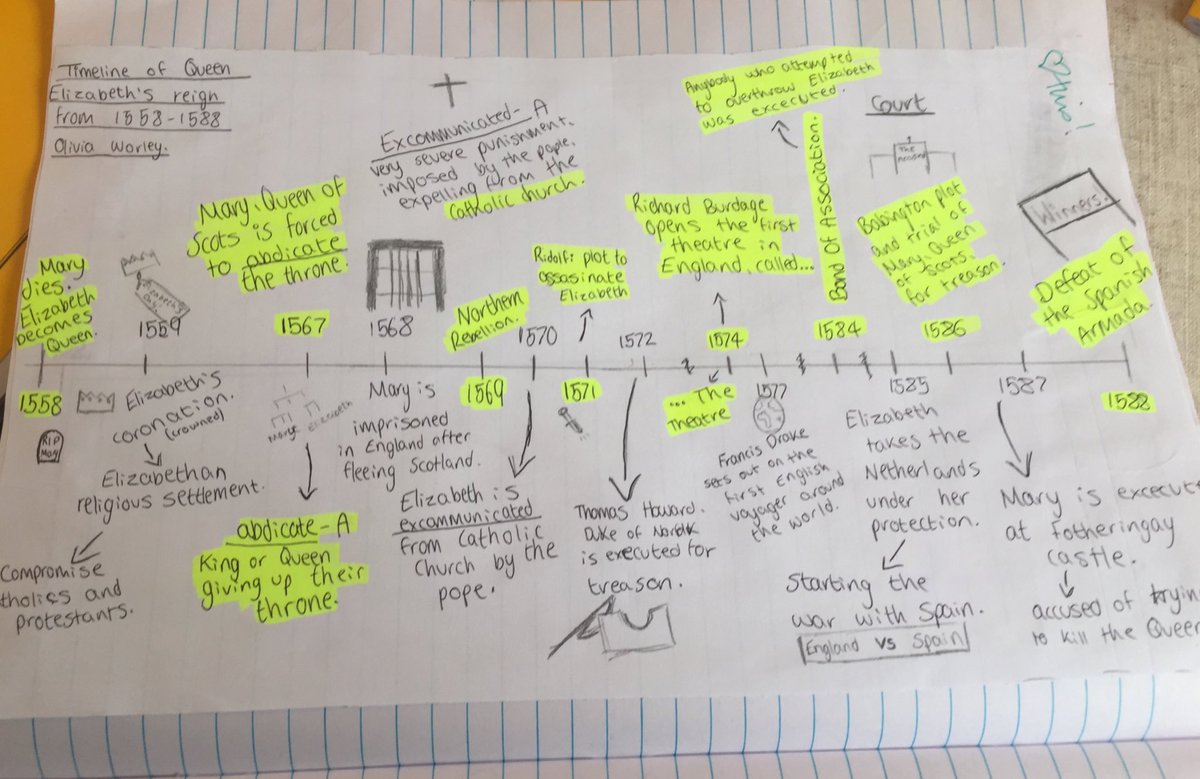 Timeline of Queen
Elizabeth's reign
from 1558-1588
Olivia Worley.
Excommunicated- A
very severe punishment.
imposed by the pope.
expelling from the
Catholic church.
Anybody who attempted
to overthrow Elizabeth
was excecuted.
Court
The
Mary
dies.
Elizabeth
becomes
Queen.
1558
RIP
Mary
1559
Elizabeth's
coronation.
(crowned)
Elizabethan
religious settlement.
Compromise
tholics and
protestants.
Mary, Queen of
Scots is forced
to abdicate
the throne.
1567
Mary
Elizabeth
abdicate - A
King or Queen
giving up their
throne.
1568
Mary is
imprisoned
in England after
fleeing Scotland.
Northern
Rebellion.
1569
1570
Elizabeth is
excommunicated
from Catholic
church by the
pope.
Ridolfi plot to
assasinate
Elizabeth
1571
1572
Thomas Howard.
Duke of Norfolk
is executed for
treason.
Richard Burdage
opens the first
theatre in
England, called...
1574
... The
Theatre
1577
Francis Drake
sets out on the
first English
voyager around
the world.
Bond Of Association.
1584
1585
Elizabeth
takes the
Netherlands
under her
protection.
Starting the
war with Spain.
England vs Spain
Babbington plot
and trial of
Mary, Queen
of Scots.
for treason.
1586
1587
Mary is excecute
at Fotheringay
castle.
accused of trying
to kill the Queen
Winners!
Defeat of
the Spanish
Armada.
1588